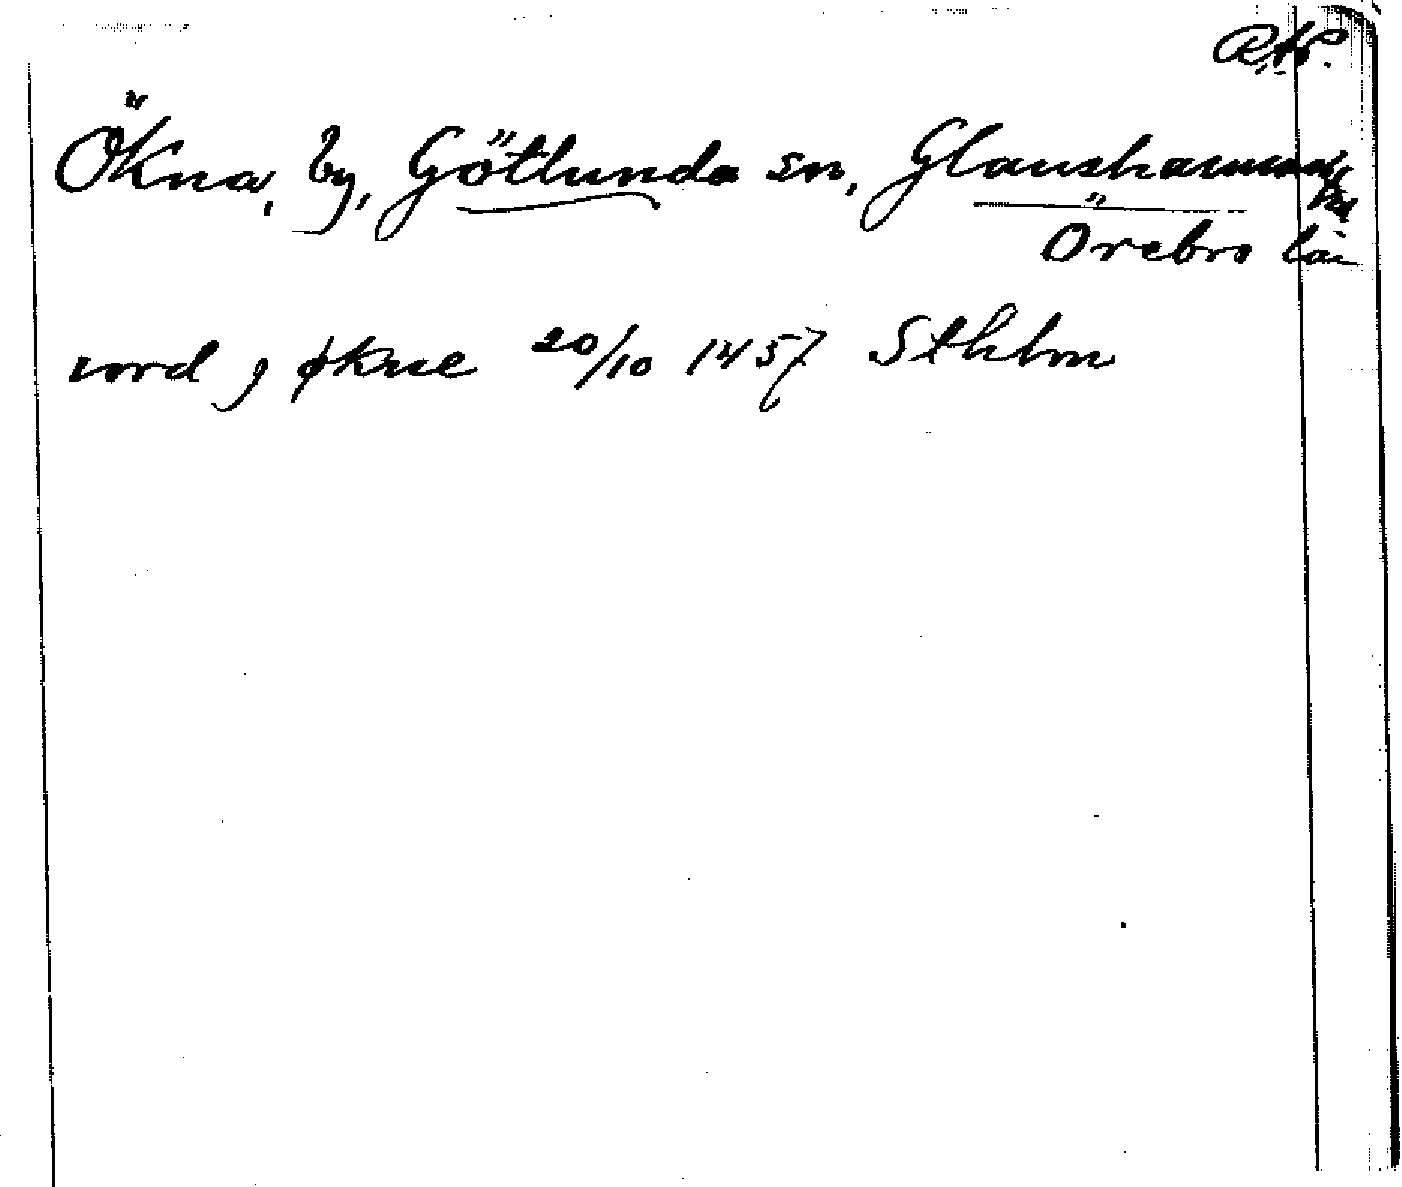 RAP.
Ökna, by, Götlunda sn, Glanshammars hd
Örebro län
vord j økne 20/10 1457 Sthlm